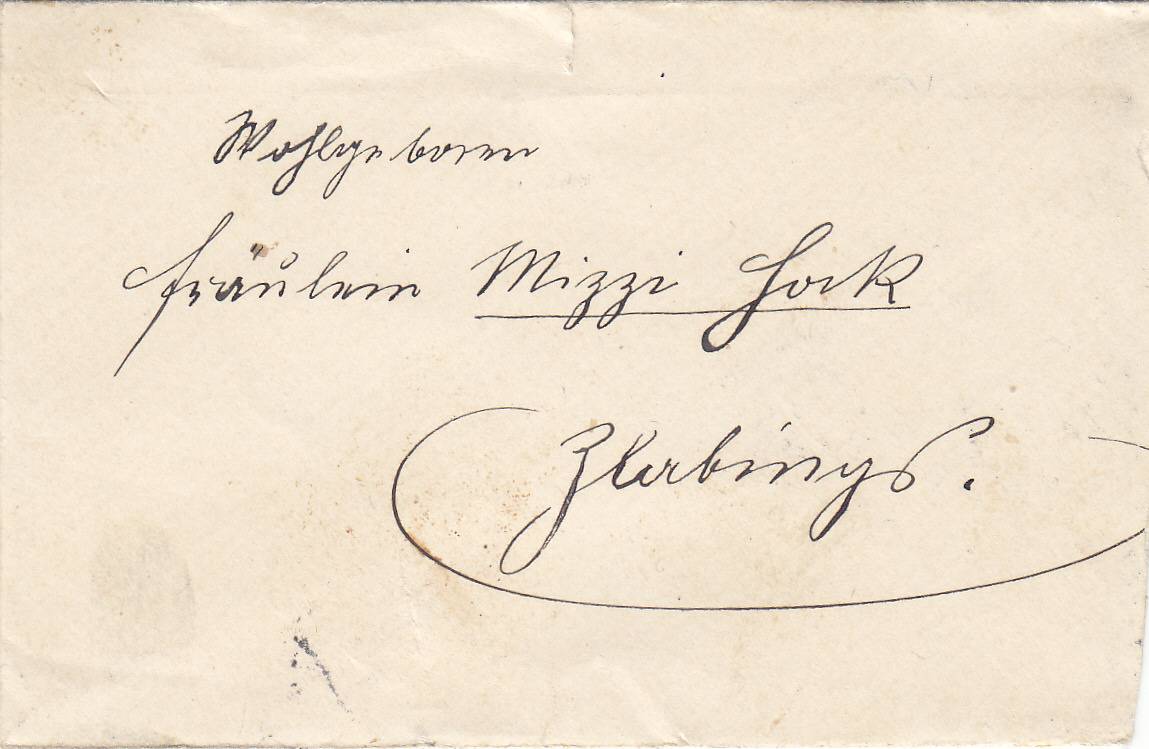 Wohlgeboren
Fräulein Mizzi Hock
Zlabings.